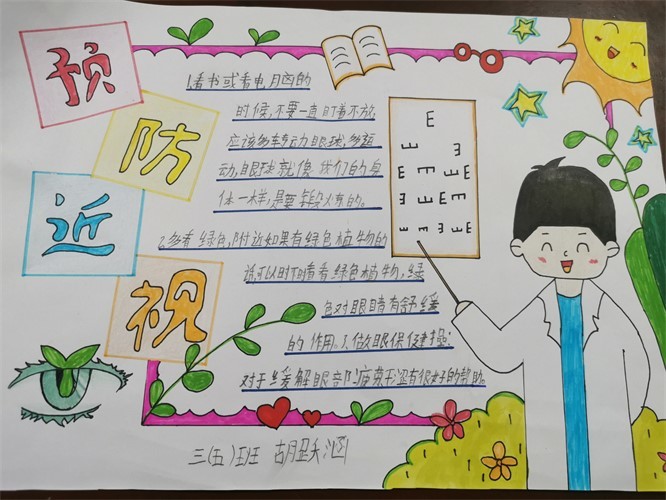 预
防
近
视
1.看书或看电脑的
时候,不要一直盯着不放,
应该多转动眼球,多运
动,眼球就像我们的身
体一样,是要锻火东的。
2.多看绿色,附近如果有绿色植物的
话,可以时时看看绿色植物,绿
色对眼睛有舒缓
的作用。3.做眼保健操:
对于缓解眼部疲劳还有很好的帮助。
三(五)班 胡
E
E E
E E E
E E E E
E E E E